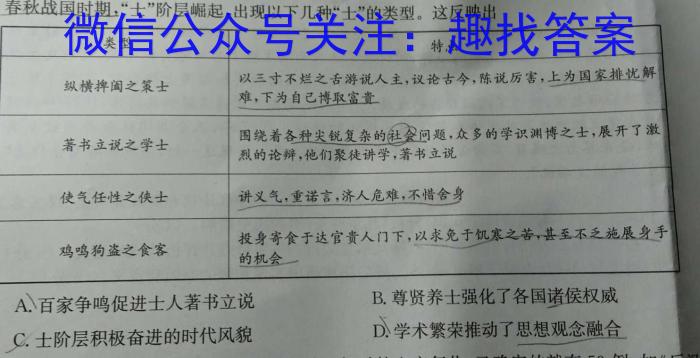 春秋战国时期,“士”阶层崛起,出现以下几种“士”的类型。这反映出
微信公众号关注：趣找答案
类型
特
纵横捭阖之策士
以三寸不烂之舌游说人主,议论古今,陈说厉害,上为国家排忧解
难,下为自己博取富贵
著书立说之学士
围绕着各种尖锐复杂的社会问题,众多的学识渊博之士,展开了激
烈的论辩,他们聚徒讲学,著书立说
使气任性之侠士
讲义气,重诺言,济人危难,不惜舍身
鸡鸣狗盗之食客
投身寄食于达官贵人门下,以求免于饥寒之苦,甚至不乏施展身手
的机会
A.百家争鸣促进士人著书立说
B.尊贤养士强化了各国诸侯权威
C.士阶层积极奋进的时代风貌
D.学术繁荣推动了思想观念融合